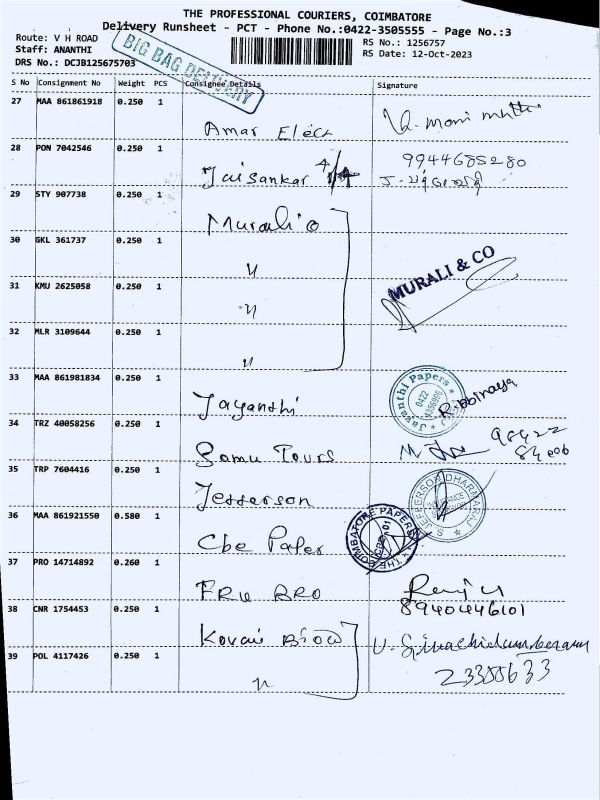 THE PROFESSIONAL COURIERS, COIMBATORE
Delivery Runsheet - PCT - Phone No.:0422-3505555 - Page No.:3
Route: V H ROAD
Staff: ANANTHI
DRS No.: DCJB125675703
BIG BAG DELIVERY
RS No.: 1256757
RS Date: 12-Oct-2023
S No Consignment No Weight PCS Consignee Details Signature
27 MAA 861861918 0.250 1 Amar Elecs
28 PON 7042546 0.250 1 Jaisankar 9944685280
29 STY 907738 0.250 1 Murali
30 GKL 361737 0.250 1 "
MURALI & CO
31 KMU 2625058 0.250 1 "
32 MLR 3109644 0.250 1 "
33 MAA 861981834 0.250 1 Jayanthi
Jayanthi Papers
0422
R. Abinaya
34 TRZ 40058256 0.250 1 Somu Tours
35 TRP 7604416 0.250 1 Jefferson
S JEFFERSON DHARMARAJ
36 MAA 861921550 0.580 1 Cbe Paper
THE COIMBATORE PAPERS
37 PRO 14714892 0.260 1 FRU BRO
8940446101
38 CNR 1754453 0.250 1 Kovai
39 POL 4117426 0.250 1 "